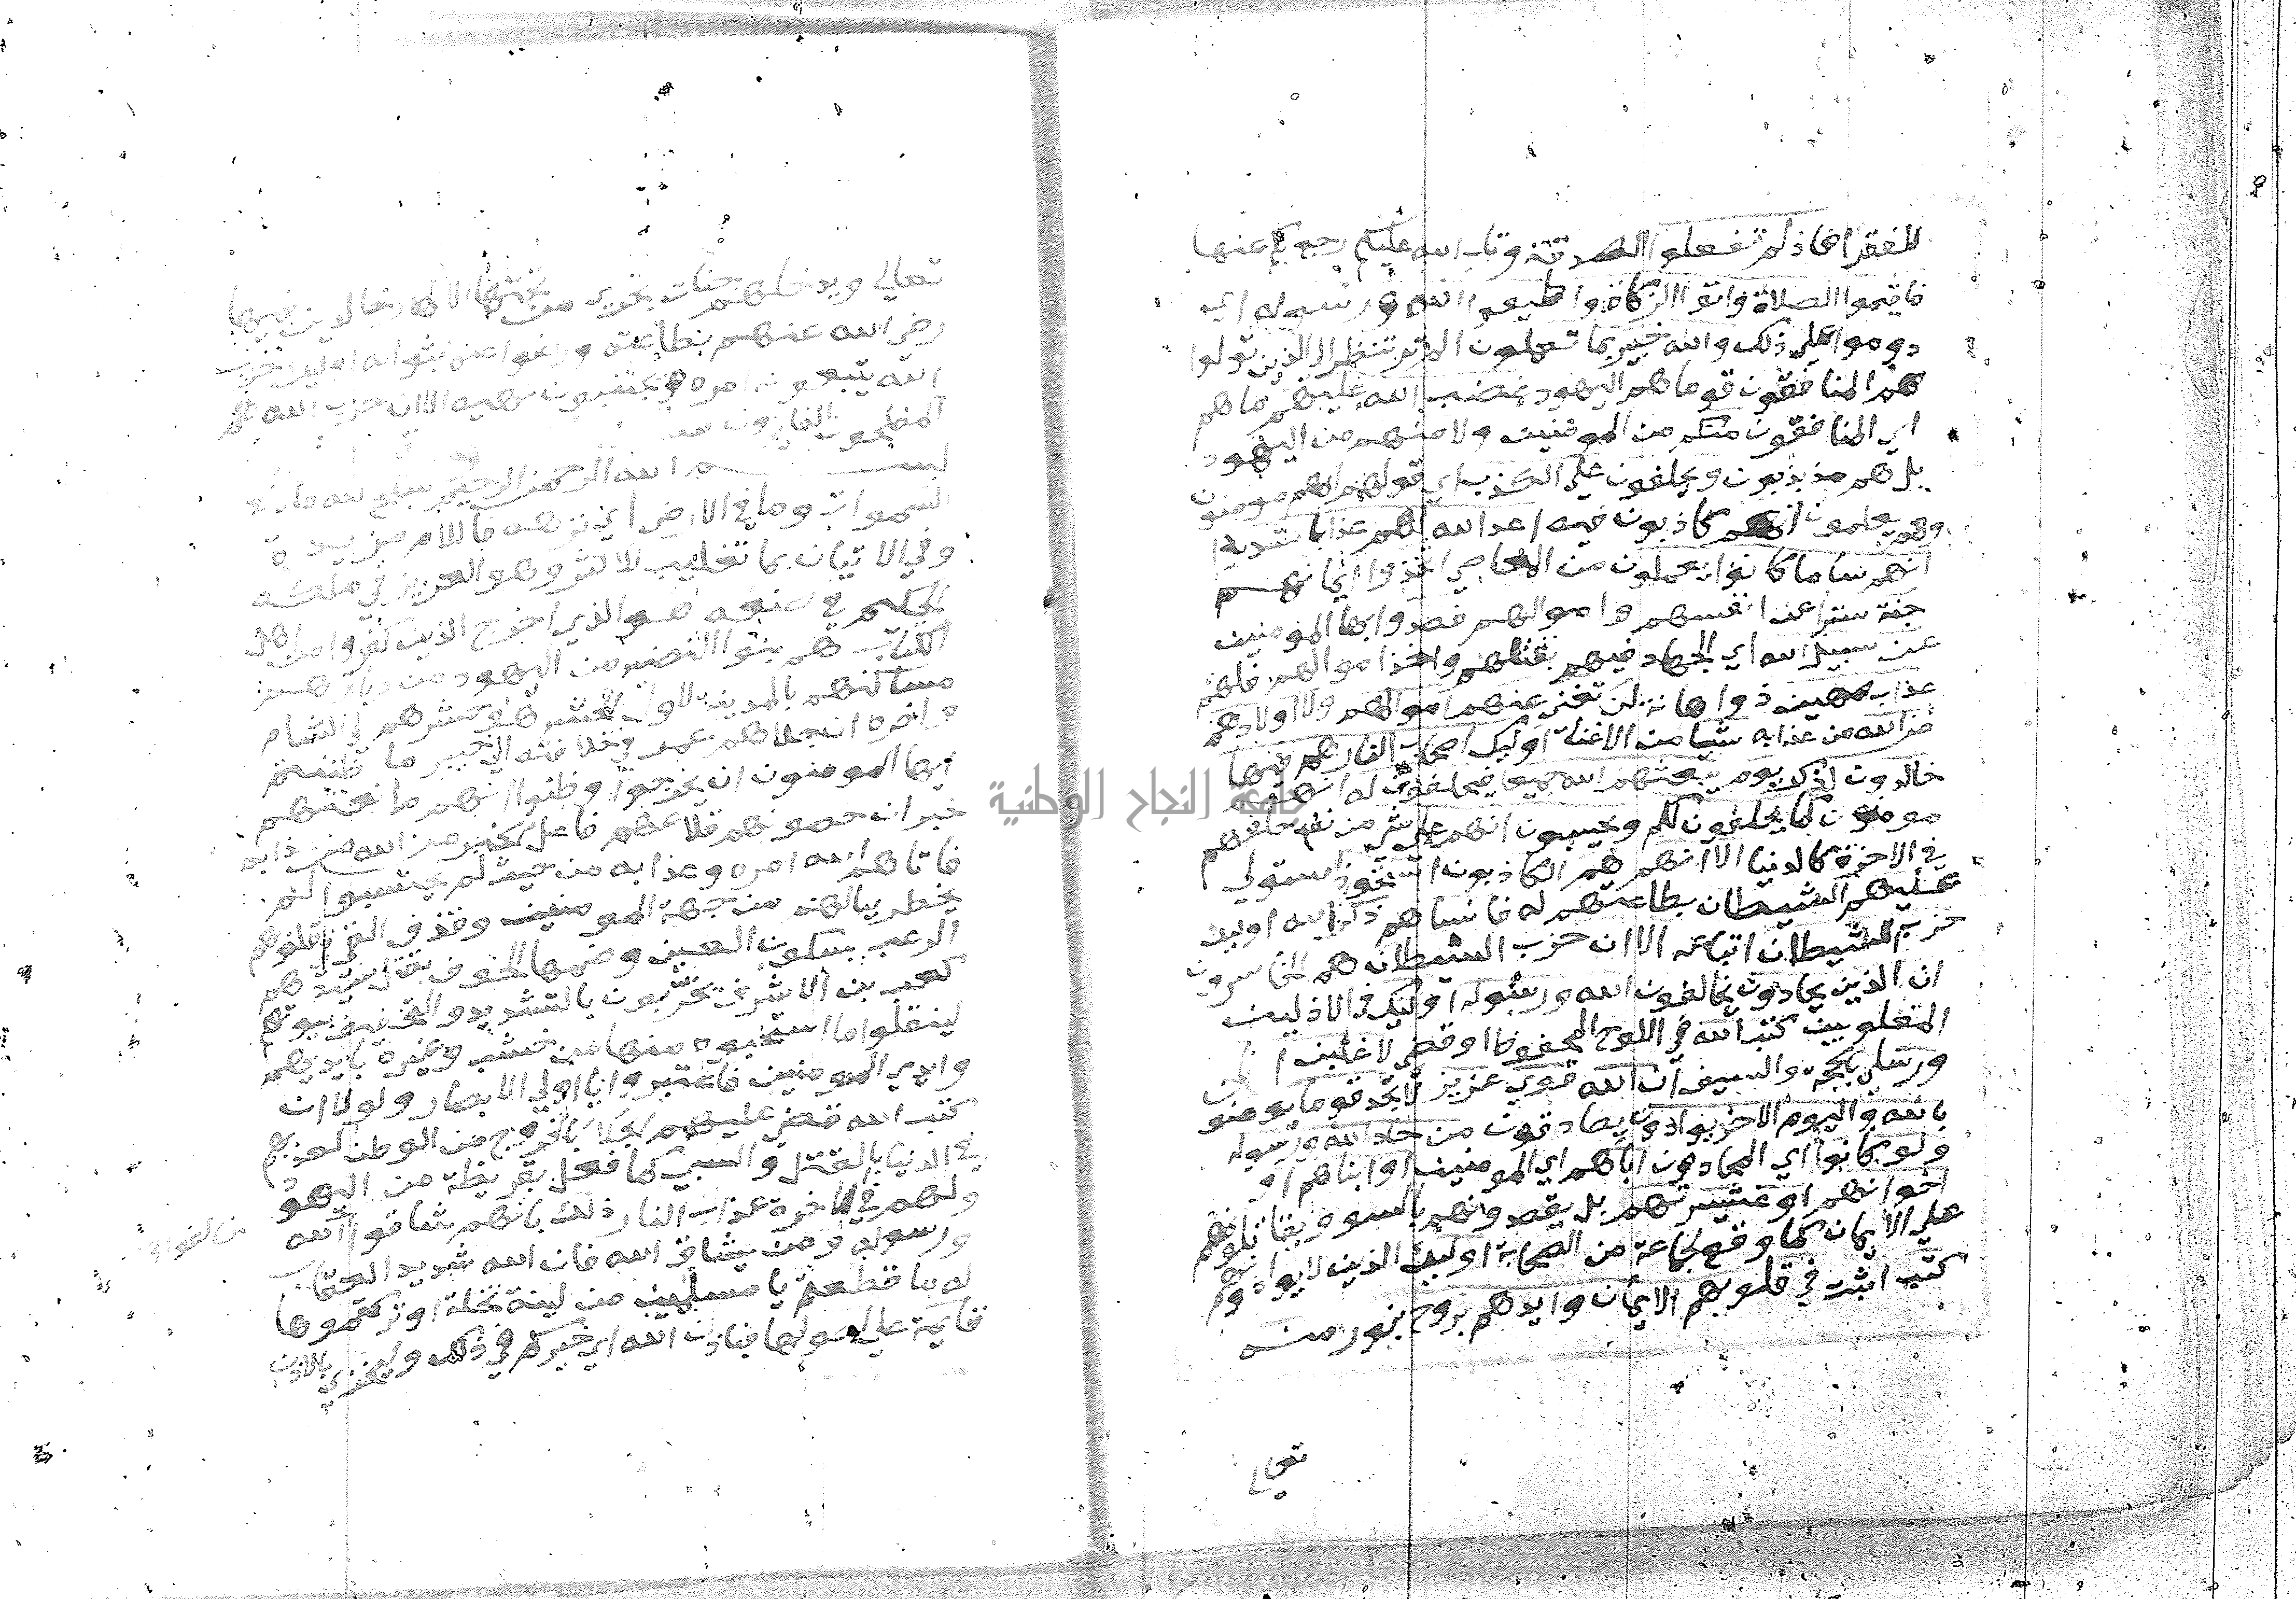 للفقرا فاذ لم تفعلوا الصدقة وتاب الله عليكم رجع بكم عنها
فاقيموا الصلاة واتوا الزكاة واطيعوا الله ورسوله اي
دوموا علي ذلك والله خبير بما تعملون الم تر تنظر الي الذين تولوا
هم المنافقون قوما هم اليهود غضب الله عليهم ما هم
اي المنافقون منكم من المومنين ولا منهم من اليهود
بل هم مذبذبون ويحلفون علي الكذب اي قولهم انهم مومنون
وهم يعلمون انهم كاذبون فيه اعد الله لهم عذابا شديدا
انهم سا ما كانوا يعملون من المعاصي اتخذوا ايمانهم
جنة سترا عن انفسهم واموالهم فصدوا بها المومنين
عن سبيل الله اي الجهاد فيهم بقتلهم واخذ اموالهم فلهم
عذاب مهين ذو اهانة لن تغني عنهم اموالهم ولا اولادهم
من الله من عذابه شيا من الاغنا اوليك اصحاب النار هم فيها
خالدون اذكر يوم يبعثهم الله جميعا فيحلفون له انهم
مومنون كما يحلفون لكم ويحسبون انهم علي شي من نفع حلفهم
في الاخرة كالدنيا الا انهم هم الكاذبون استحوذ استولي
عليهم الشيطان بطاعتهم له فانساهم ذكر الله اوليك
حزب الشيطان اتباعه الا ان حزب الشيطان هم الخاسرون
ان الذين يحادون يخالفون الله ورسوله اوليك في الاذلين
المغلوبين كتب الله في اللوح المحفوظ او قضي لاغلبن انا
ورسلي بالحجة والسيف ان الله قوي عزيز لا تجد قوما يومنون
بالله واليوم الاخر يوادون يصادقون من حاد الله ورسوله
ولو كانوا اي المحادون اباهم اي المومنين او ابناهم او
اخوانهم او عشيرتهم بل يقصدونهم بالسوء ويقاتلونهم
علي الايمان كما وقع لجماعة من الصحابة اوليك الذين لا يوادونهم
كتب اثبت في قلوبهم الايمان وايدهم بروح بنور منه
تعالي
تعالي ويدخلهم جنات تجري من تحتها الانهار خالدين فيها
رضي الله عنهم بطاعته ورضوا عنه بثوابه اوليك حزب
الله يتبعون امره ويجتنبون نهيه الا ان حزب الله هم
المفلحون الفايزون
بسم الله الرحمن الرحيم سبح لله ما في
السموات وما في الارض اي نزهه فاللام مزيدة
وفي الاتيان بما تغليب للاكثر وهو العزيز في ملكه
الحكيم في صنعه هو الذي اخرج الذين كفروا من اهل
الكتاب هم بنوا النضير من اليهود من ديارهم
مساكنهم بالمدينة لاول الحشر هو حشرهم الي الشام
واخره ان جلاهم عمر في خلافته الي خيبر ما ظننتم
ايها المومنون ان يخرجوا وظنوا انهم مانعتهم
خبر ان حصونهم فاعل الخبر من الله من عذابه
فاتاهم الله امره وعذابه من حيث لم يحتسبوا لم
يخطر ببالهم من جهة المومنين وقذف القي في قلوبهم
الرعب بسكون العين وضمها الخوف بقتل سيدهم
كعب بن الاشرف يخربون بالتشديد والتخفيف بيوتهم
لينقلوا ما استحبوه منها من خشب وغيره بايديهم
وايدي المومنين فاعتبروا يا اولي الابصار ولولا ان
كتب الله قضي عليهم الجلا الخروج من الوطن لعذبهم
في الدنيا بالقتل والسبي كما فعل بقريظة من اليهود
ولهم في الاخرة عذاب النار ذلك بانهم شاقوا الله
ورسوله ومن يشاق الله فان الله شديد العقاب
له ما قطعتم يا مسلمين من لينة نخلة او تركتموها
قايمة علي اصولها فباذن الله اي خيركم في ذلك وليخزي بالاذن
جامعة النجاح الوطنية